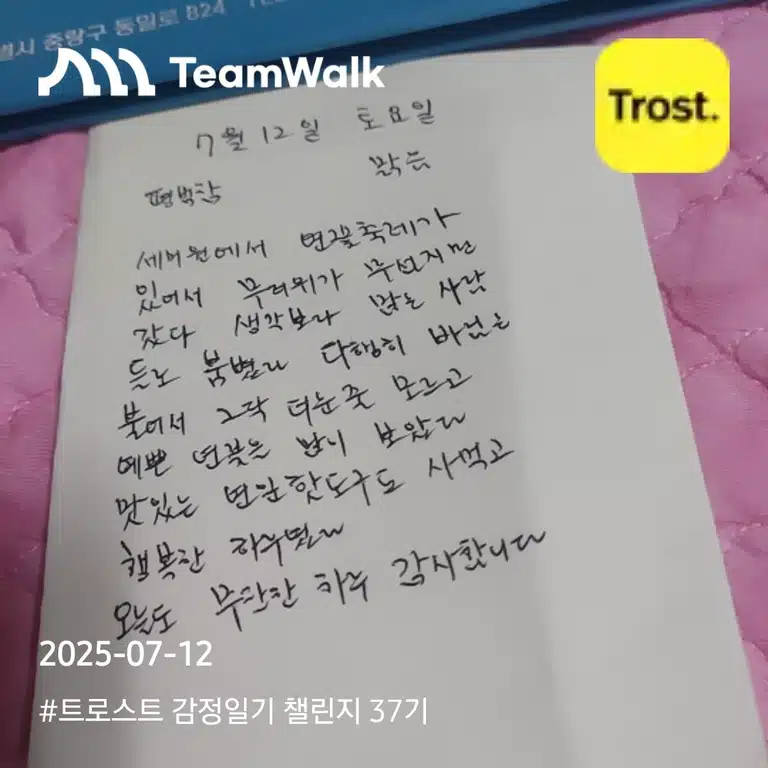 별시 중랑구 동일로 824
TeamWalk
Trost.
7월 12일 토요일
맑음
평범함
세미원에서 연꽃축제가
있어서 무더위가 무섭지만
갔다 생각보다 많은 사람
들로 붐볐다 다행히 바람은
불어서 그닥 더운줄 모르고
예쁜 연꽃은 많이 보았다
맛있는 연잎핫도구도 사먹고
행복한 하루였다
오늘도 무탄한 하루 감사합니다
2025-07-12
#트로스트 감정일기 챌린지 37기